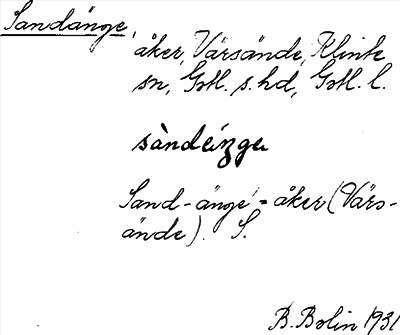 Sandänge,
åker, Värsände, Klinte
sn, Gotl. s. hd, Gotl. l.
sàndèiŋge
Sand-änge = åker (Värs-
ände). S.
B. Bolin 1931